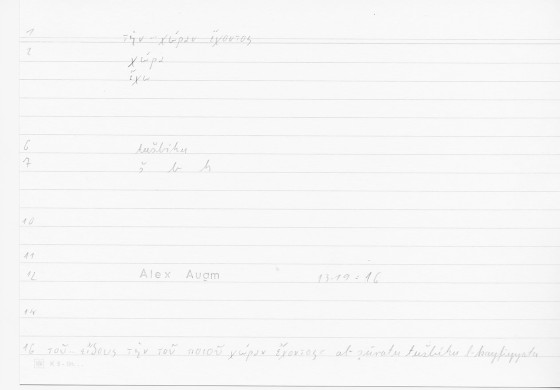 1 τὴν χώραν ἔχοντος
2 χώρα
ἔχω
6 tušbihu
7 š b h
10
11
12 Alex Augm 13.19 = 16
14
16 τοῦ εἴδους τὴν τοῦ ποιοῦ χώραν ἔχοντος: tušbihu